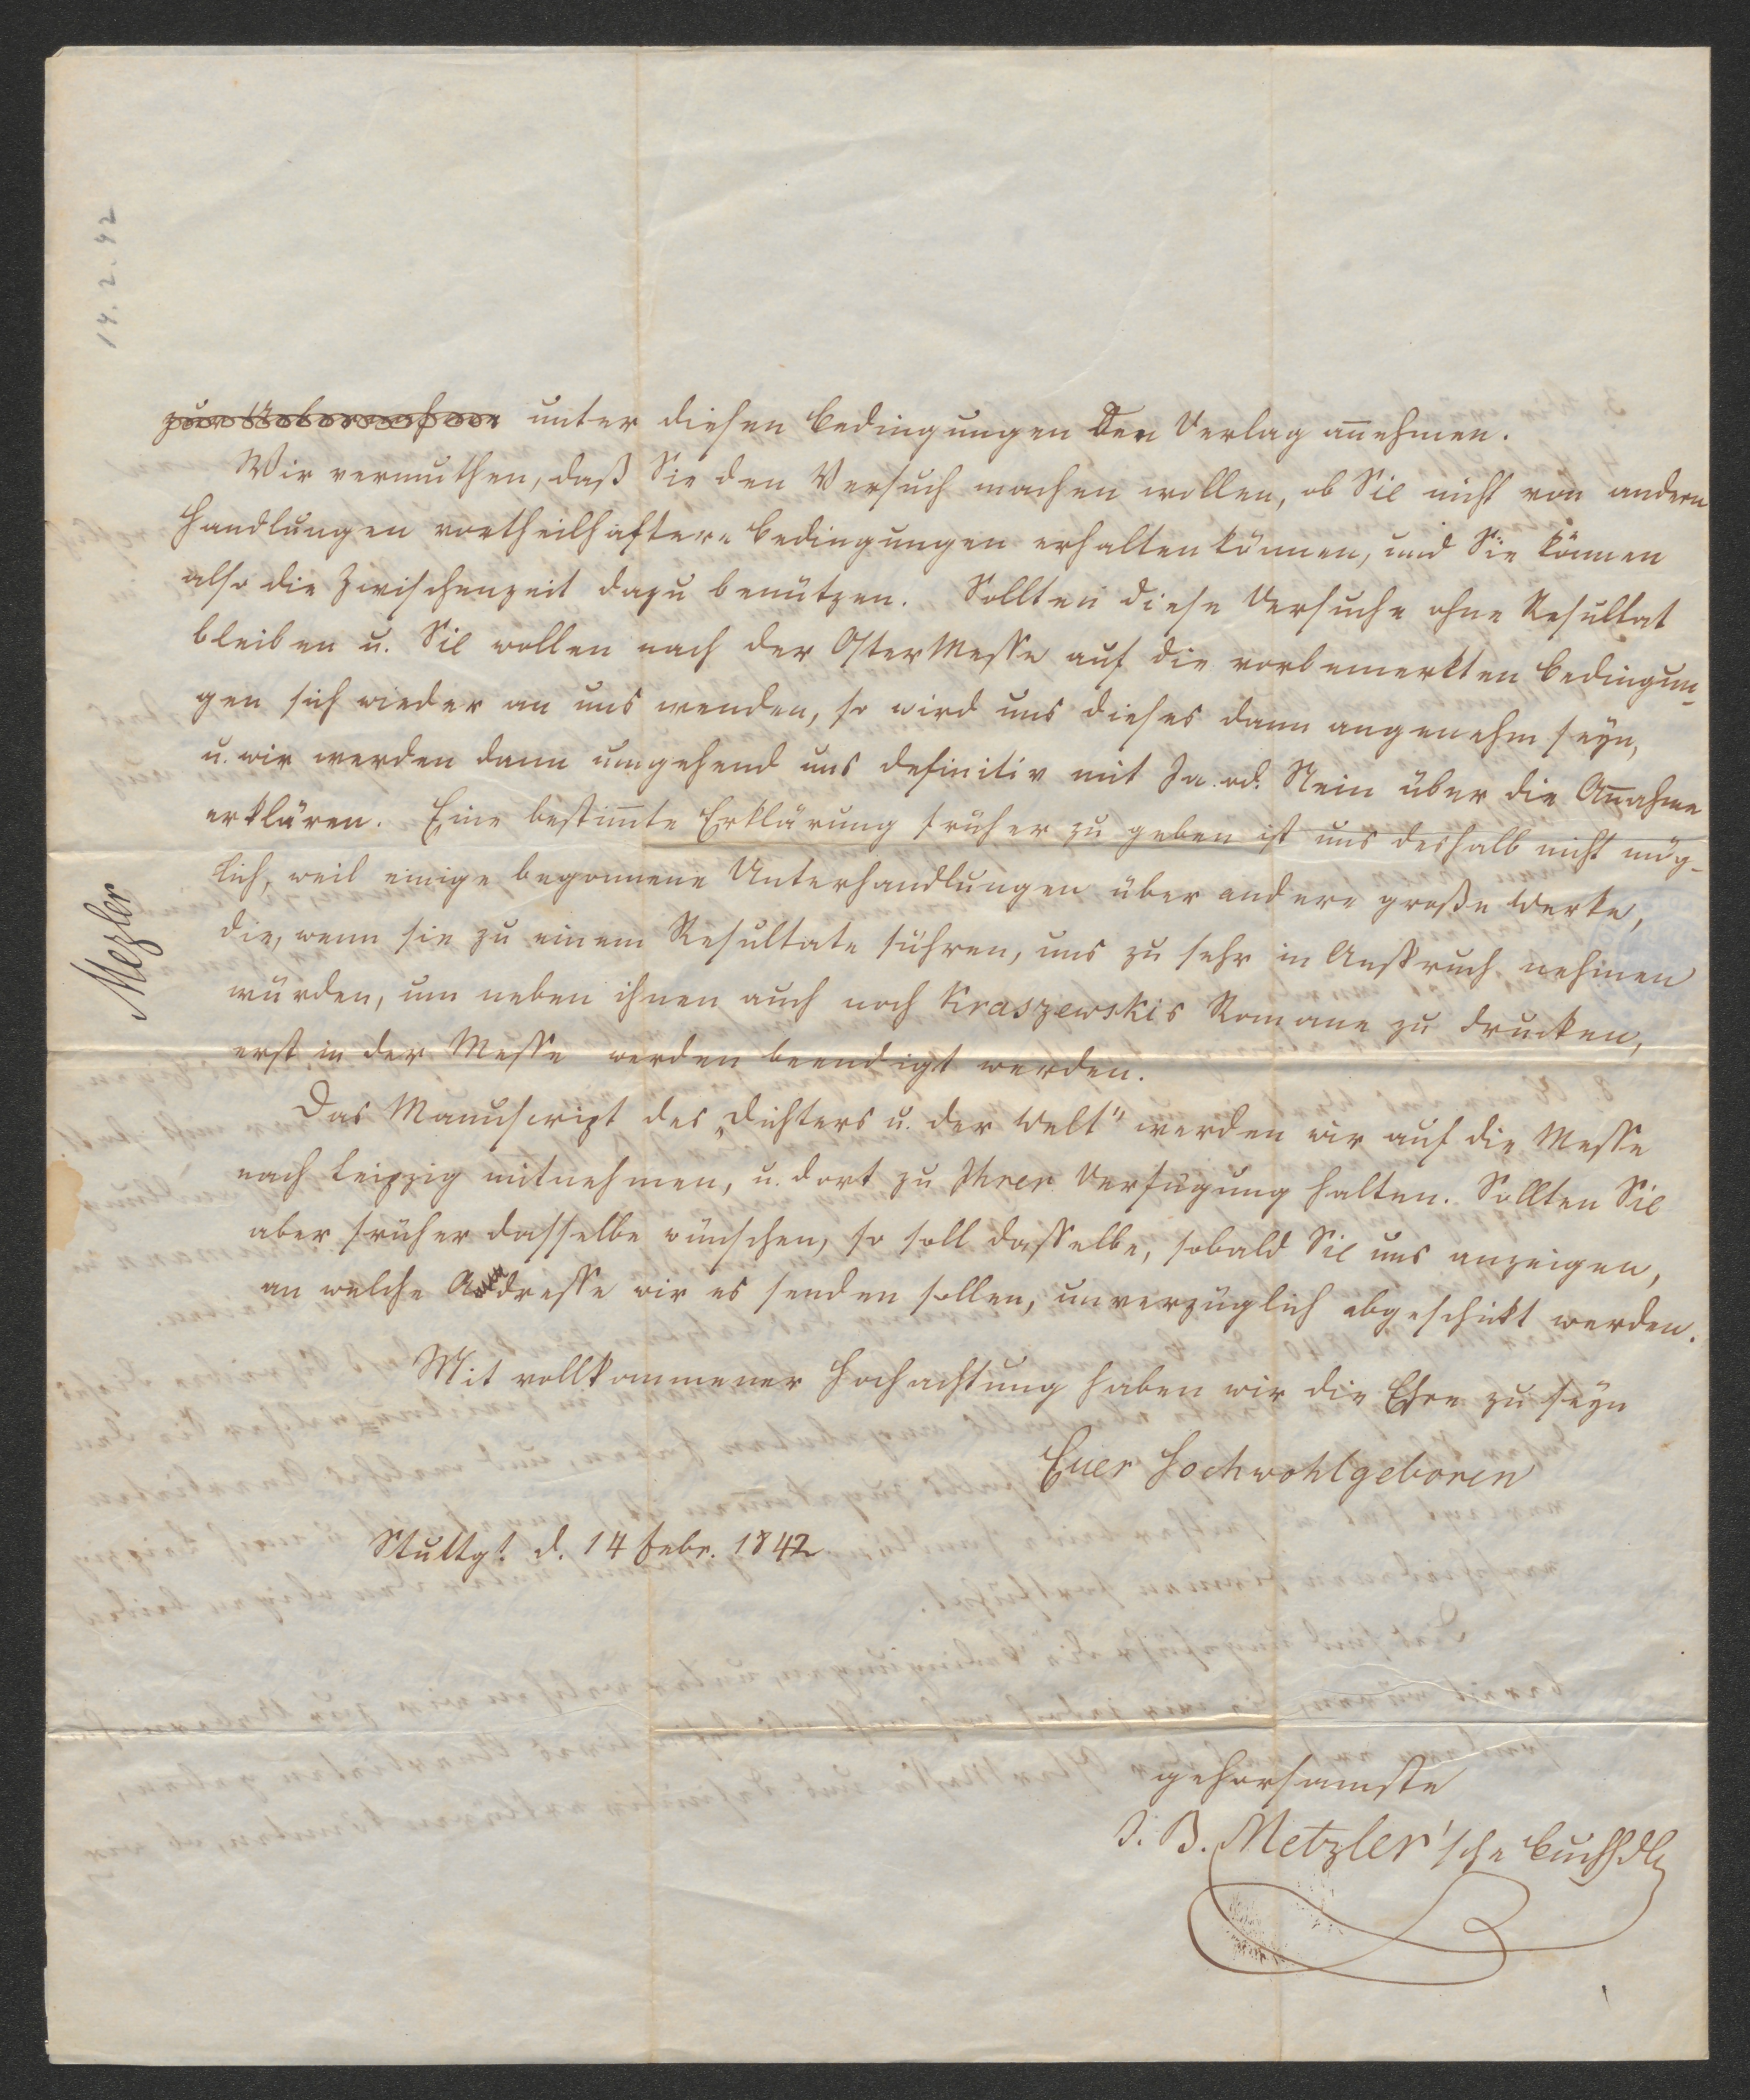 14.2.42
zur Uebernahme unter diesen Bedingungen den Verlag an̅ehmen.
Wir vermuthen, daß Sie den Versuch machen wollen, ob Sie nicht von andern
Handlungen vortheilhaftere Bedingungen erhalten können, und Sie können
also die Zwischenzeit dazu benützen. Sollten diese Versuche ohne Resultat
bleiben u. Sie wollen nach der OsterMesse auf die vorbemerkten Bedingun-
gen sich wieder an uns wenden, so wird uns dieses dann angenehm seyn,
u. wir werden dann umgehend uns definitiv mit Ja od. Nein über die An̅ahme
erklären. Eine bestim̅te Erklärung früher zu geben ist uns deshalb nicht mög-
lich, weil einige begonnene Unterhandlungen über andere große Werke,
die, wenn sie zu einem Resultate führen, uns zu sehr in Anspruch nehmen
würden, um neben ihnen auch noch Kraszewskis Romane zu drucken,
erst in der Messe werden beendigt werden.
Das Manuscript des „Dichters u. der Welt" werden wir auf die Messe
nach Leipzig mitnehmen, u. dort zu Ihrer Verfügung halten. Sollten Sie
aber früher dasselbe wünschen, so soll dasselbe, sobald Sie uns anzeigen,
an welche Addresse wir es senden sollen, unverzüglich abgeschickt werden.
Mit vollkommener Hochachtung haben wir die Ehre zu seyn
Euer Hochwohlgeboren
Stuttgt. d. 14 Febr. 1842
gehorsamste
J. B. Metzler'sche Buchhdlg
Mezler